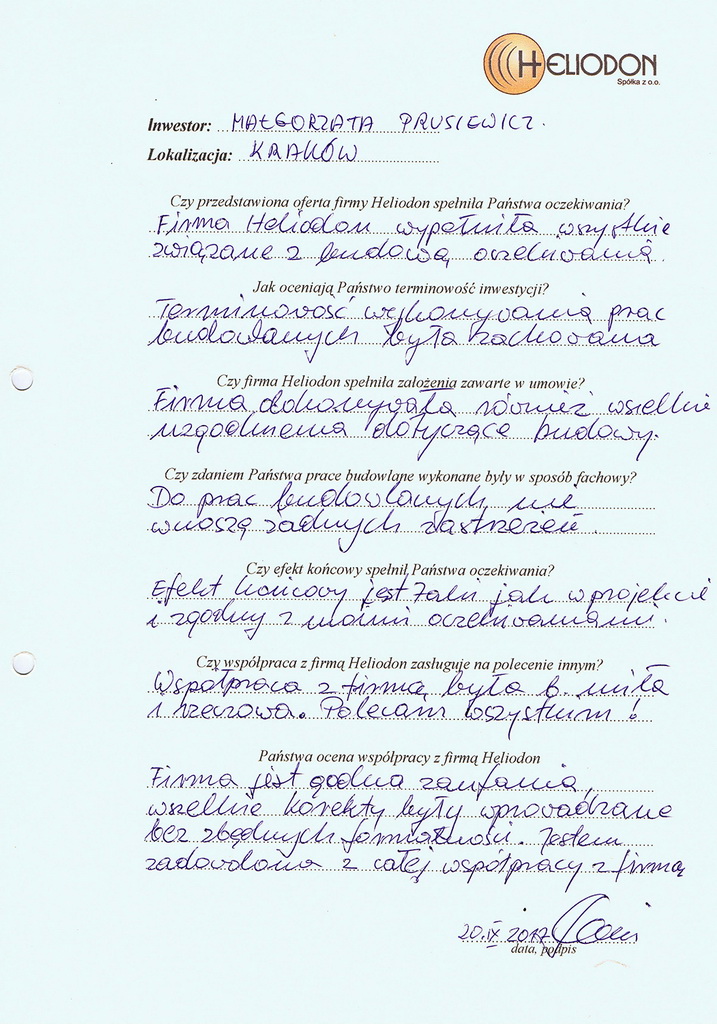 HELIODON
Spółka z o.o.
Inwestor: MAŁGORZATA PRUSIEWICZ.
Lokalizacja: KRAKÓW
Czy przedstawiona oferta firmy Heliodon spełniła Państwa oczekiwania?
Firma Heliodon wypełniła wszystkie
związane z budową oczekiwania.
Jak oceniają Państwo terminowość inwestycji?
Terminowość wykonywania prac
budowlanych była zachowana
Czy firma Heliodon spełniła założenia zawarte w umowie?
Firma dokonywała również wszelkie
uzgodnienia dotyczące budowy.
Czy zdaniem Państwa prace budowlane wykonane były w sposób fachowy?
Do prac budowlanych nie
wnoszę żadnych zastrzeżeń.
Czy efekt końcowy spełnił Państwa oczekiwania?
Efekt końcowy jest taki jak w projekcie
i zgodny z moimi oczekiwaniami.
Czy współpraca z firmą Heliodon zasługuje na polecenie innym?
Współpraca z firmą była b. miła
i rzeczowa. Polecam wszystkim!
Państwa ocena współpracy z firmą Heliodon
Firma jest godna zaufania,
wszelkie korekty były wprowadzane
bez zbędnych formalności. Jestem
zadowolona z całej współpracy z firmą
20.IX 2017
data, podpis